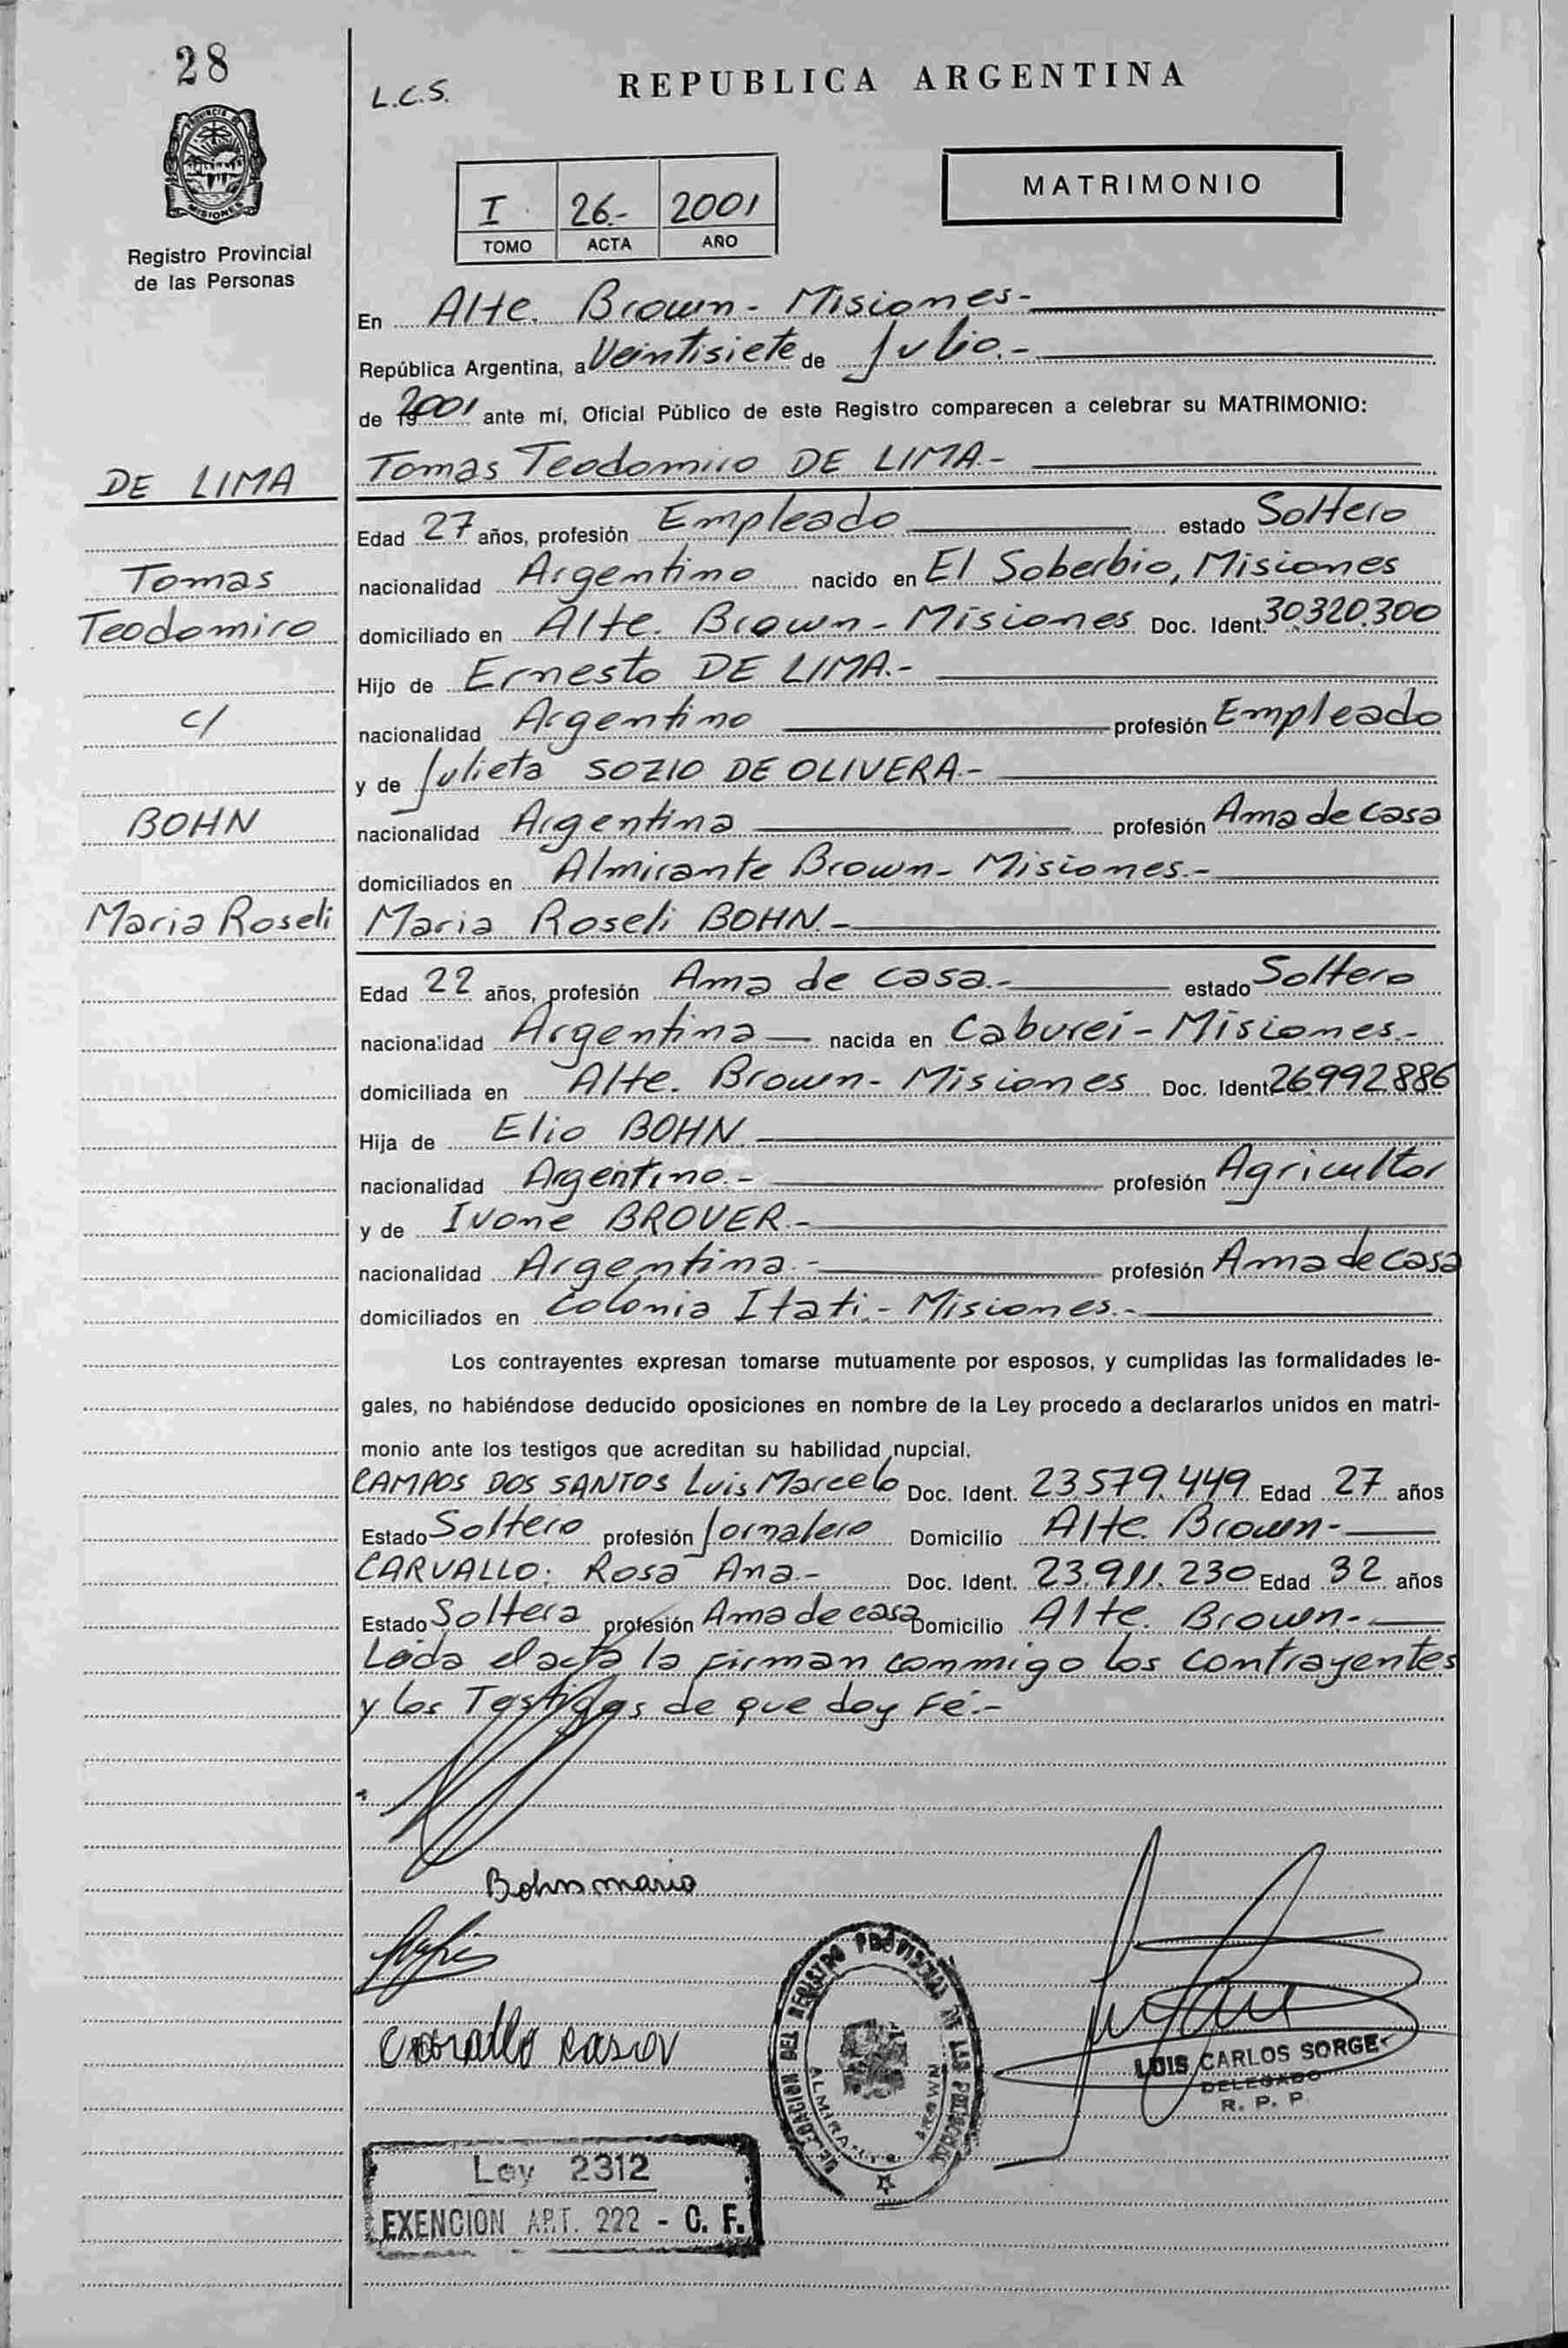 28
PROVINCIA DE
MISIONES
Registro Provincial
de las Personas
L.C.S.
REPUBLICA ARGENTINA
I 26.- 2001
TOMO ACTA AÑO
MATRIMONIO
En Alte. Brown - Misiones -
República Argentina, a Veintisiete de Julio.-
de 2001 ante mí, Oficial Público de este Registro comparecen a celebrar su MATRIMONIO:
DE LIMA
Tomas Teodomiro DE LIMA.-
Edad 27 años, profesión Empleado estado Soltero
Tomas
nacionalidad Argentino nacido en El Soberbio, Misiones
Teodomiro
domiciliado en Alte. Brown - Misiones Doc. Ident. 30.320.300
Hijo de Ernesto DE LIMA.-
c/
nacionalidad Argentino profesión Empleado
y de Julieta SOZIO DE OLIVERA.-
BOHN
nacionalidad Argentina profesión Ama de casa
domiciliados en Almirante Brown - Misiones.-
Maria Roseli
Maria Roseli BOHN.-
Edad 22 años, profesión Ama de casa.- estado Soltero
nacionalidad Argentina nacida en Caburei - Misiones.-
domiciliada en Alte. Brown - Misiones Doc. Ident. 26992.886
Hija de Elio BOHN.
nacionalidad Argentino.- profesión Agricultor
y de Ivone BROVER.-
nacionalidad Argentina.- profesión Ama de casa
domiciliados en Colonia Itati - Misiones.-
Los contrayentes expresan tomarse mutuamente por esposos, y cumplidas las formalidades le-
gales, no habiéndose deducido oposiciones en nombre de la Ley procedo a declararlos unidos en matri-
monio ante los testigos que acreditan su habilidad nupcial.
CAMPOS DOS SANTOS Luis Marcelo Doc. Ident. 23.579.449 Edad 27 años
Estado Soltero profesión Jornalero Domicilio Alte. Brown -
CARVALLO: Rosa Ana.- Doc. Ident. 23.911.230 Edad 32 años
Estado Soltera profesión Ama de casa Domicilio Alte. Brown -
Leida el acta la firman conmigo los contrayentes
y los Testigos de que doy Fé.-
Bohn maria
DELEGACION DEL REGISTRO PROVINCIAL DE LAS PERSONAS
ALMIRANTE BROWN
LUIS CARLOS SORGE
DELEGADO
R. P. P.
Ley 2312
EXENCION ART. 222 - C. F.